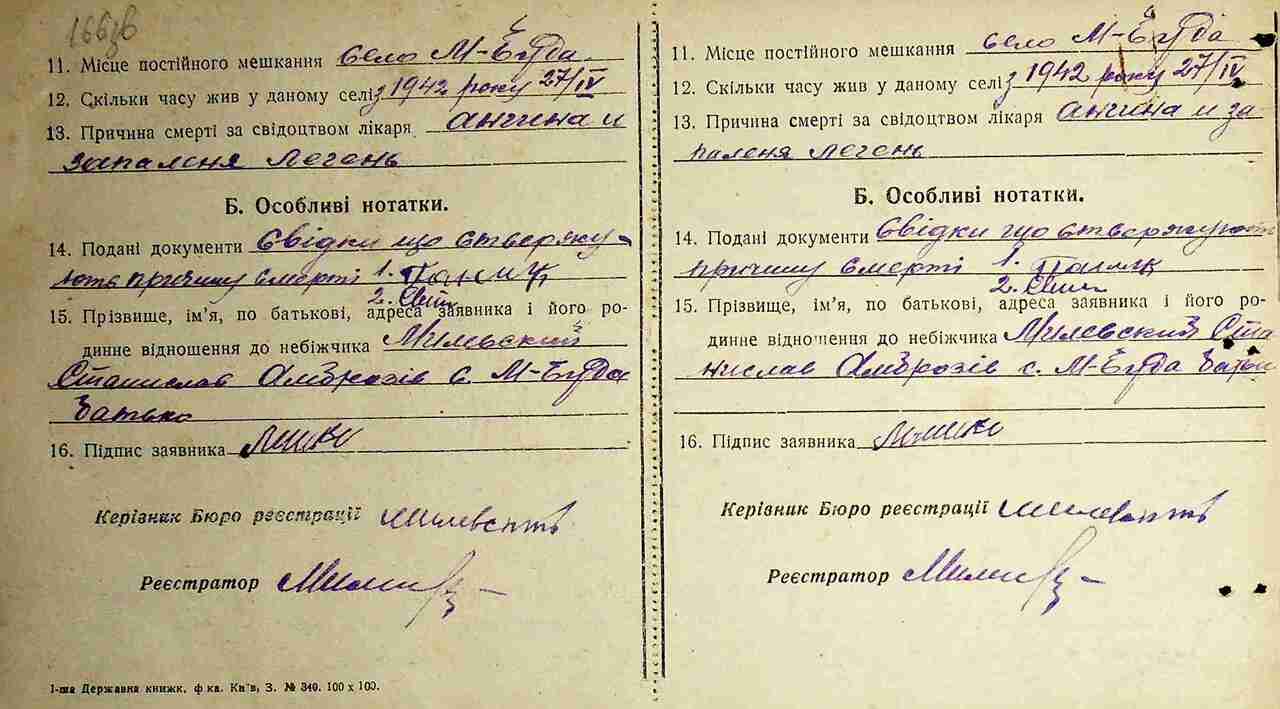 166зв
11. Місце постійного мешкання село М-Буда
12. Скільки часу жив у даному селі з 1942 року 27/IV
13. Причина смерті за свідоцтвом лікаря ангина и
запаленя легень
Б. Особливі нотатки.
14. Подані документи Свідки що стверджу-
ють причину смерті 1.
2.
15. Прізвище, ім'я, по батькові, адреса заявника і його ро-
динне відношення до небіжчика Милевский
Станислав Амброзів с. М-Буда
батько
16. Підпис заявника
Керівник Бюро реєстрації
Реєстратор
1-ша Державна книжк. ф-ка. Київ, З. № 340. 100 x 100.
11. Місце постійного мешкання село М-Буда
12. Скільки часу жив у даному селі з 1942 року 27/IV
13. Причина смерті за свідоцтвом лікаря ангина и за
паленя легень
Б. Особливі нотатки.
14. Подані документи Свідки що стверджують
причину смерті 1.
2.
15. Прізвище, ім'я, по батькові, адреса заявника і його ро-
динне відношення до небіжчика Милевский Ста
нислав Амброзів с. М-Буда батько
16. Підпис заявника
Керівник Бюро реєстрації
Реєстратор